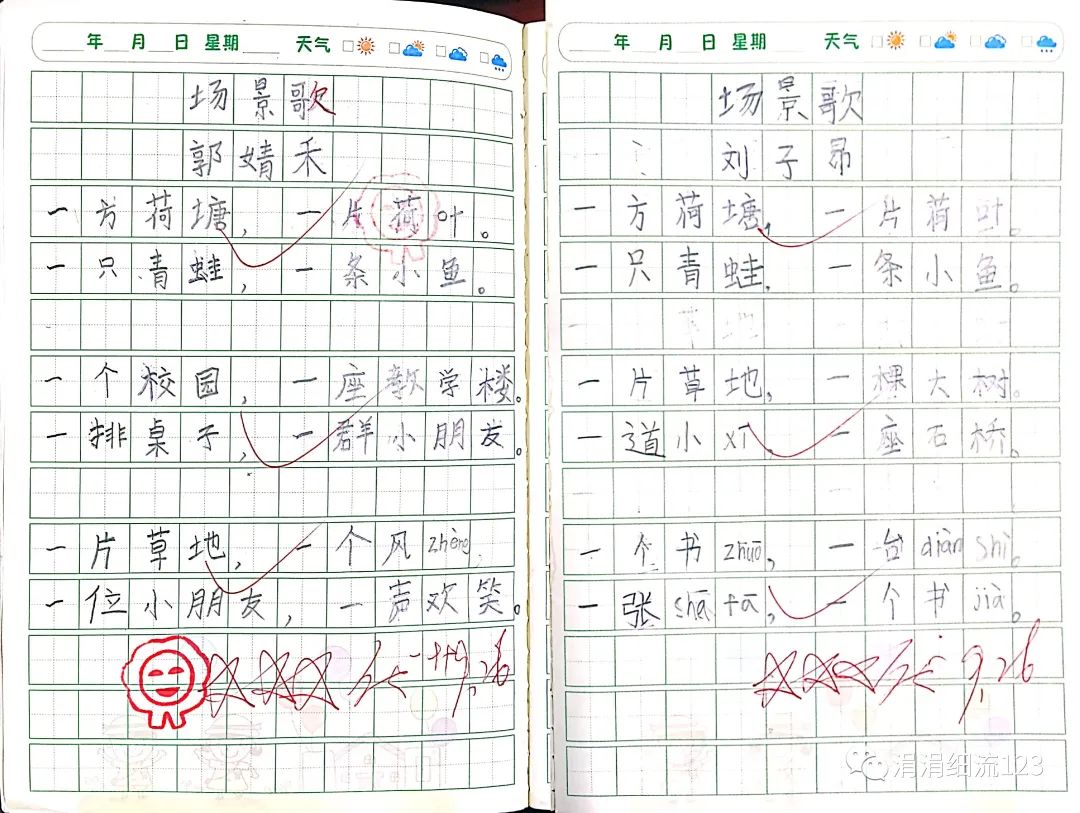 年 月 日 星期 天气
场景歌
郭婧禾
一方荷塘，一片荷叶。
一只青蛙，一条小鱼。
一个校园，一座教学楼。
一排桌子，一群小朋友。
一片草地，一个风zhēng
一位小朋友，一声欢笑。
9.26
年 月 日 星期 天气
场景歌
刘子昂
一方荷塘，一片荷叶。
一只青蛙，一条小鱼。
一片草地，一棵大树。
一道小xī，一座石桥。
一个书zhuō，一台diàn shì。
一张shā fā，一个书jià。
9.26
涓涓细流123